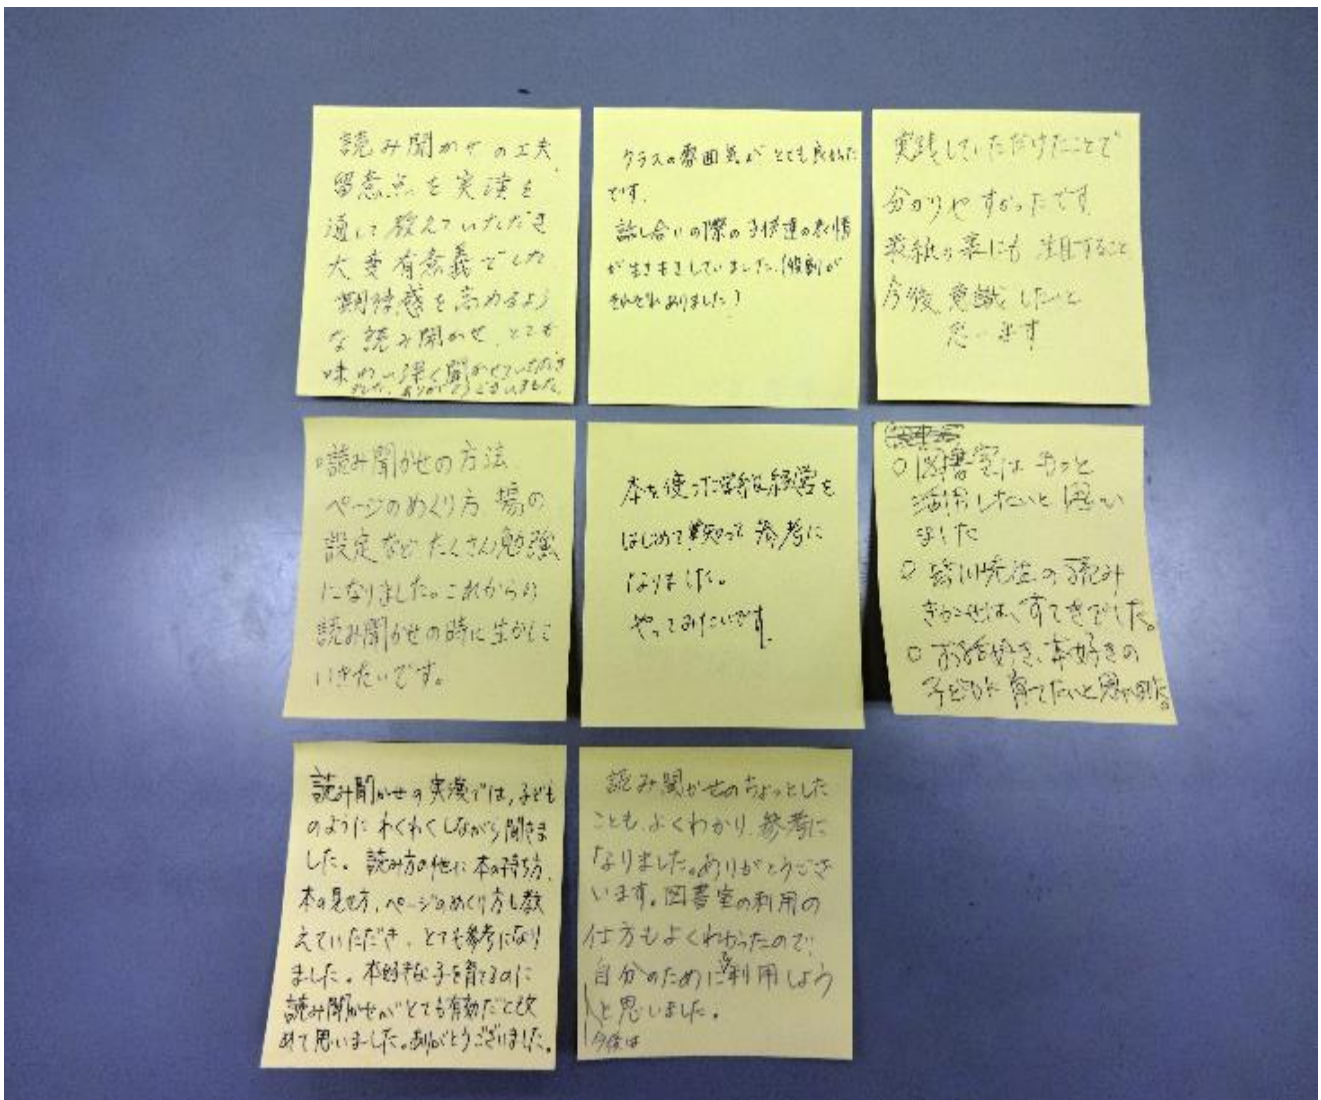 読み聞かせの工夫、
留意点を実演を
通して教えていただき
大変有意義でした
期待感を高めるよう
な読み聞かせ、とても
味わい深く聞かせていただき
ました。ありがとうございました。
クラスの雰囲気がとても良かった
です。
話し合いの際の子供達の表情
が生き生きしていました。(役割が
それぞれありました)
実践していただけたことで
分かりやすかったです
表紙の裏にも注目すること
今後、意識したいと
思います
。読み聞かせの方法
ページのめくり方 場の
設定など、たくさん勉強
になりました。これからの
読み聞かせの時に生かして
いきたいです。
本を使った学級経営を
はじめて知って参考に
なりました。
やってみたいです。
○図書室はもっと
活用したいと思い
ました
○ 先生の読み
きかせは、すてきでした。
○ お話好き、本好きの
子どもに育てたいと思いました。
読み聞かせの実演では、子ども
のようにわくわくしながら聞きま
した。読み方の他に本の持ち方、
本の見せ方、ページのめくり方も教
えていただき、とても参考になり
ました。本好きな子を育てるのに
読み聞かせがとても有効だと改
めて思いました。ありがとうございました。
読み聞かせのちょっとした
ことも、よくわかり、参考に
なりました。ありがとうござ
います。図書室の利用の
仕方もよくわかったので、
自分のためにも利用しよう
と思いました。
今後は